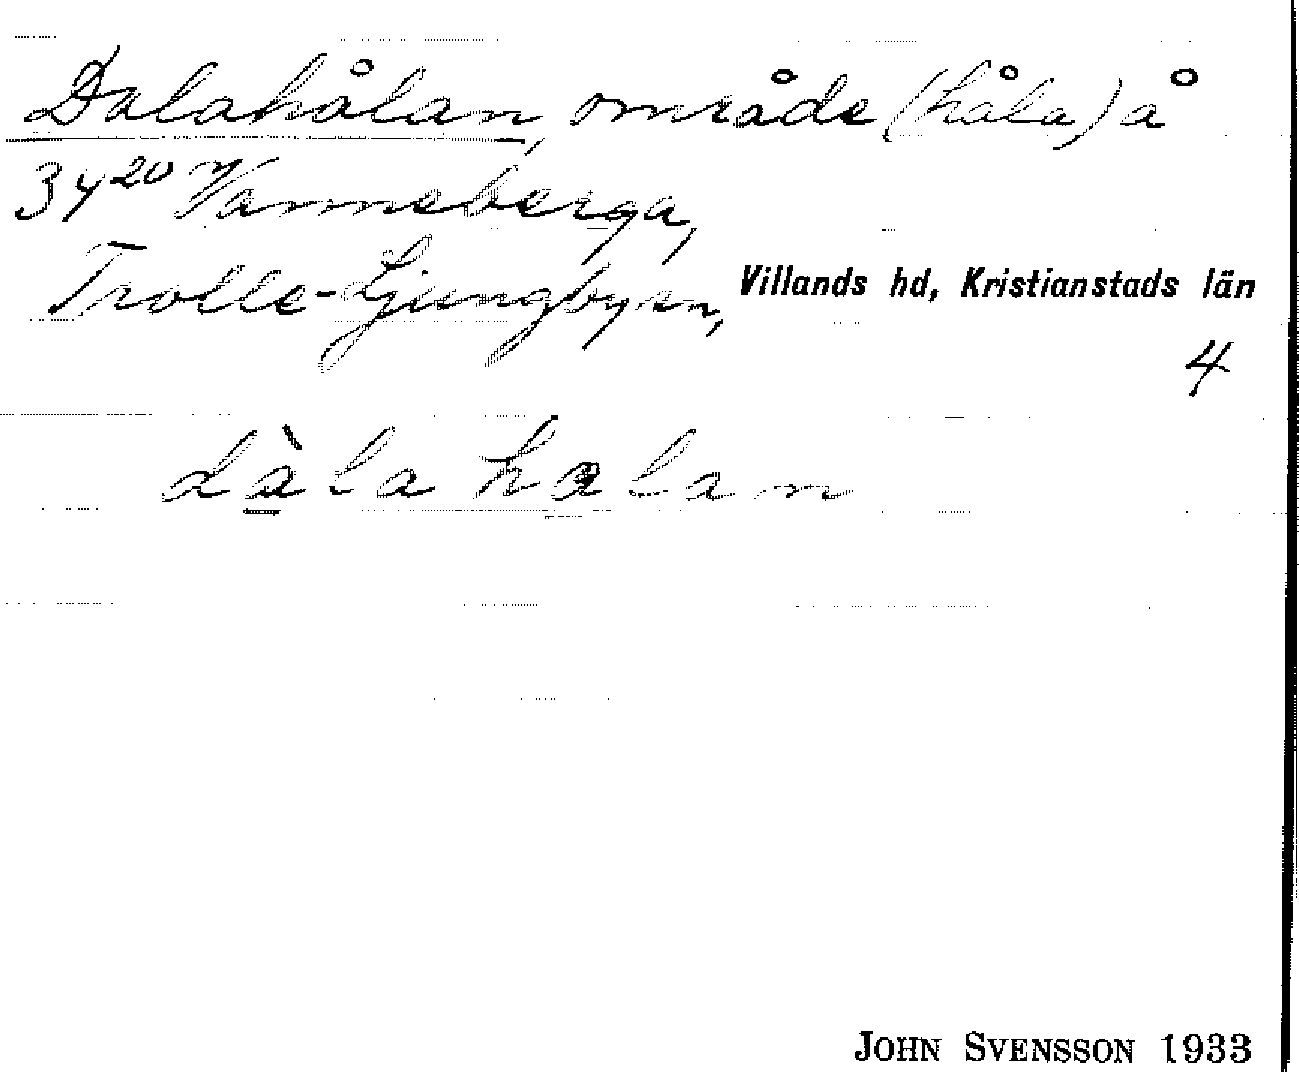 Dalahålan, område (håla) å
34²⁰ Vanneberga,
Trolle-Ljungbysn, Villands hd, Kristianstads län
4
dàlahalan
JOHN SVENSSON 1933